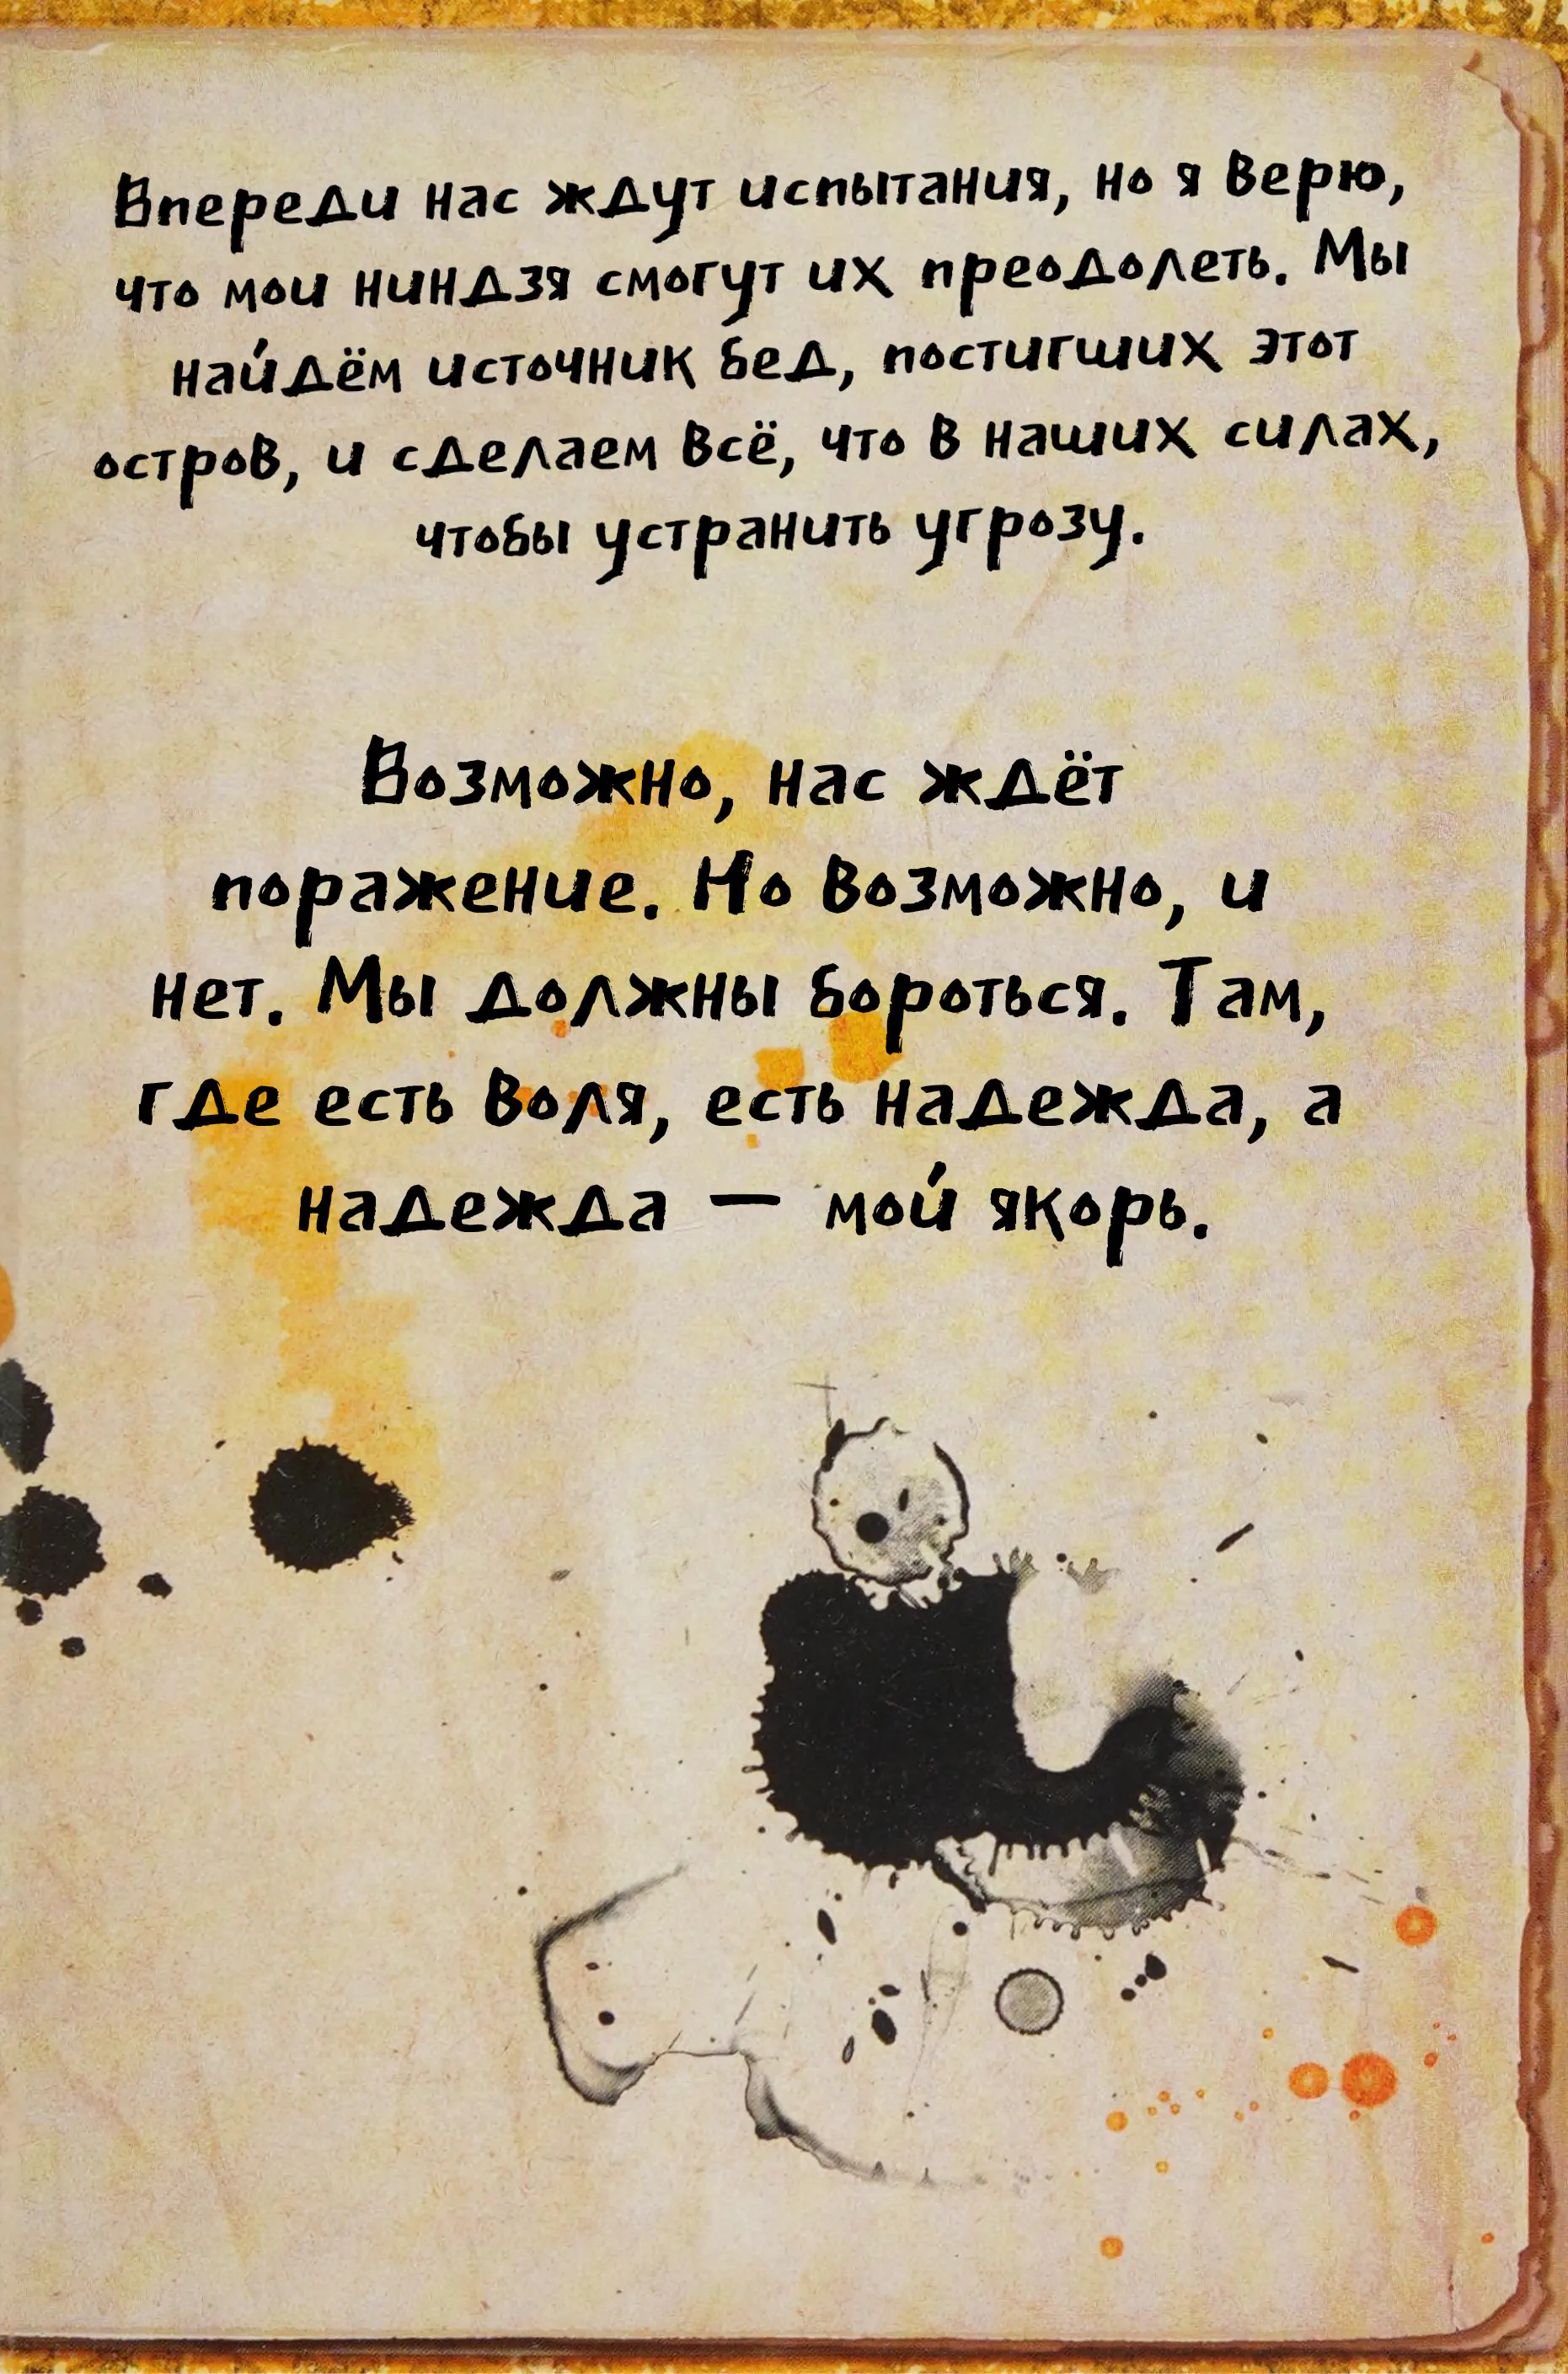 Впереди нас ждут испытания, но я верю,
что мои ниндзя смогут их преодолеть. Мы
найдём источник бед, постигших этот
остров, и сделаем всё, что в наших силах,
чтобы устранить угрозу.
Возможно, нас ждёт
поражение. Но возможно, и
нет. Мы должны бороться. Там,
где есть воля, есть надежда, а
надежда — мой якорь.